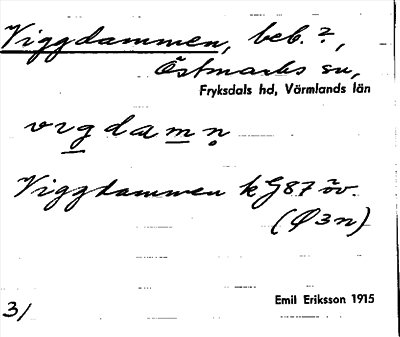 Viggdammen, beb.?,
Östmarks sn,
Fryksdals hd, Värmlands län
vigdamn
Viggdammen kG87 öv.
(Ø3n)
Emil Eriksson 1915
3/